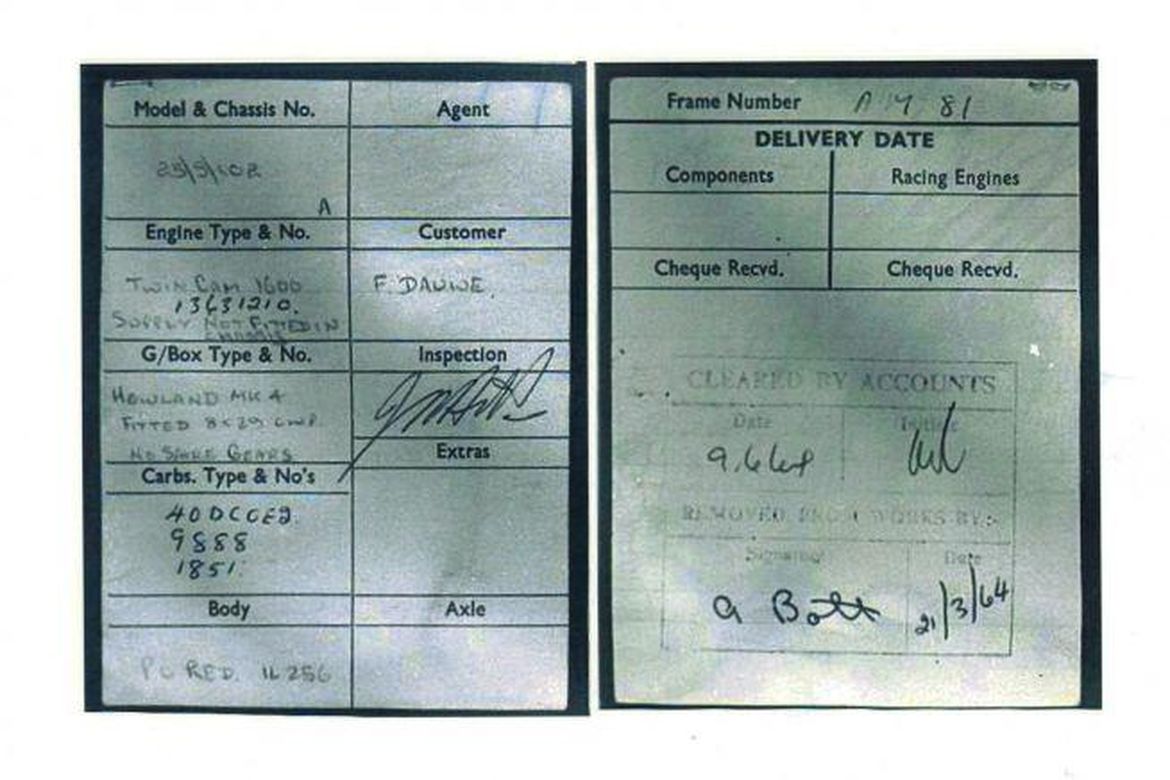 Model & Chassis No.
Agent
A
Engine Type & No.
Customer
TWIN CAM 1600
13631210.
SUPPLY NOT FITTED IN
F. DAUWE.
G/Box Type & No.
Inspection
HEWLAND MK 4
FITTED 8x29 CWP
NO SPARE GEARS
Extras
Carbs. Type & No's
40DCOE2.
9888
1851.
Body
Axle
RED. IL 256
Frame Number AM 81
DELIVERY DATE
Components
Racing Engines
Cheque Recvd.
Cheque Recvd.
CLEARED BY ACCOUNTS
Date
Initials
9.6.64
REMOVED FROM WORKS BY:-
Signature
Date
a Bott
21/3/64